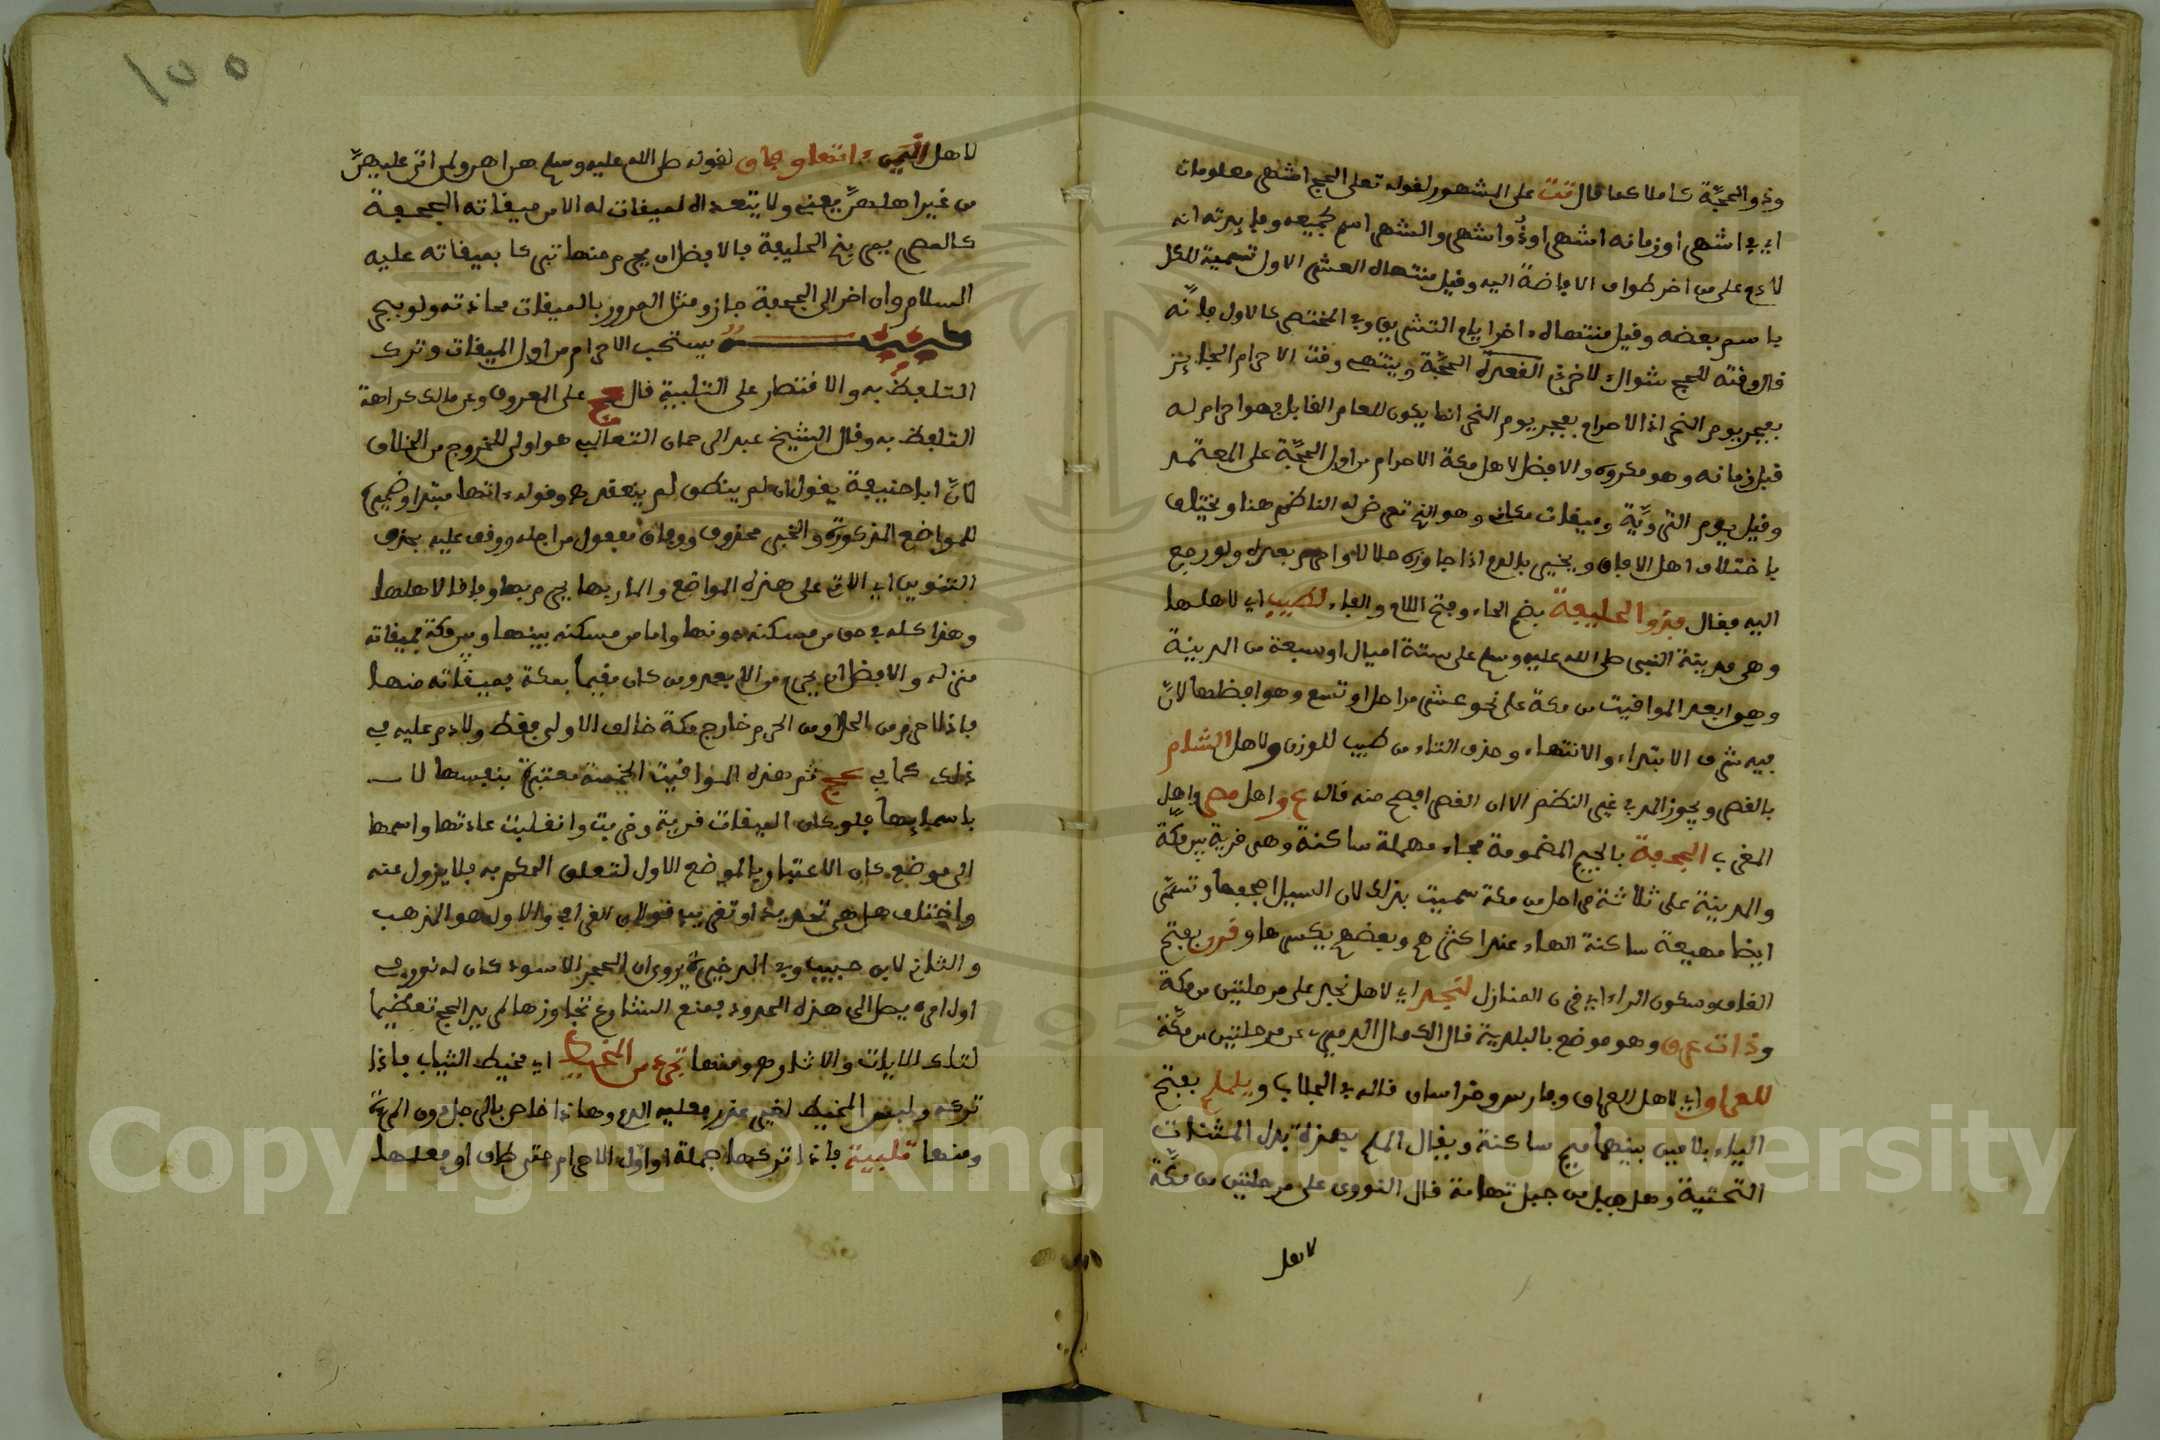 وذو الحجّة كاملا كما قال تت على المشهور لقوله تعلى الحج اشهر معلومات
اي في اشهر او زمانه اشهر او ذو اشهر والشهر اسم لجميعه وفايدته انه
لا دم على من اخر طواف الافاضة اليه وقيل منتهاه العشر الاول تسمية للكل
باسم بعضه وقيل منتهاه اخر ايام التشريق وفي المختصر كالاول فانّه
قال وقته للحج شوال لاخر ذي الحجّة وينتهي وقت الاحرام الجايز
بفجر يوم النحر اذ الاحرام بفجر يوم النحر انما يكون للعام القابل فهو احرام له
قبل زمانه وهو مكروه والافضل لاهل مكة الاحرام من اول الحجّة على المعتمد
وقيل يوم التروّية وميقات مكاني وهو الذي تعرض له الناظم هنا ويختلف
باختلاف اهل الافاق ويجبر بالدم اذا جاوزه حلالا واحرم بعده ولو رجع
اليه فقال فذو الحليفة بضم الحاء وفتح اللام والفاء لطيب اي لاهلها
وهي مدينة النبي صلى الله عليه وسلم على ستة اميال او سبعة من المدينة
وهو ابعد المواقيت من مكة على نحو عشر مراحل او تسع وهو افضلها لانّ
فيه شرف الابتداء والانتهاء وحذف التاء من طيب للوزن ولاهل الشام
بالقصر ويجوز المد في غير النظم الا ان القصر افصح منه قاله ع واهل مصر واهل
المغرب الجحفة بالجيم المضمومة فحاء مهملة ساكنة وهي قرية بين مكّة
والمدينة على ثلاثة مراحل من مكة سميت بذلك لان السيل اجحفها وتسمّى
ايضا مهيعة ساكنة الهاء عند اكثرهم وبعضهم يكسرها وقرن بفتح
القاف وسكون الراء اي قرن المنازل لنجد اي لاهل نجد على مرحلتين من مكة
وذات عرق وهو موضع بالبادية قال الكمال الدميري على مرحلتين من مكّة
للعراق اي لاهل العراق وفارس وخراسان قاله في الجلاب ويلملم بفتح
الياء بلامين بينهما ميم ساكنة ويقال الملم بهمزة بدل المثنات
التحتية وهل جبل من جبل تهامة قال النووي على مرحلتين من مكّة
لاهل
١٥٥
لاهل اليمن اتفاق لقوله صلى الله عليه وسلم هن لهم ولمن اتى عليهنّ
من غير اهلهنّ يعني ولا يتعداه لميقات له الا من ميقاته الجحفة
كالمصري يمر بذي الحليفة فالافضل ان يحرم منها تبركا بميقاته عليه
السلام وان اخر الى الجحفة جاز ومثل المرور بالميقات محاذته ولو ببحر
تنبيه يستحب الاحرام من اول الميقات وترك
التلفظ به والاقتصار على التلبية قال عج على المعروف وعن مالك كراهة
التلفظ به وقال الشيخ عبد الرحمان الثعالبي هو اولى للخروج من الخلاف
لانّ ابا حنيفة يقول ان لم ينطق لم ينعقد ه وقوله اتفا مبتدا وضمير
للمواضع المذكورة والخبر محذوف ووفاق مفعول من اجله ووقف عليه بحذف
التنوين اي الاتي على هذه المواضع والمار بها يحرم بها وفاقا لاهلها
وهذا كله في حق من مسكنه دونها واما من مسكنه بينها وبين مكة فميقاته
منزله والافضل ان يحرم من الابعد ومن كان مقيما بمكة فميقاته منها
فاذا احرم من الحل او من الحرم خارج مكة خالف الاولى فقط ولا دم عليه في
ذلك كما في عج ثم هذه المواقيت الخمسة معتبرة بنفسها لا
باسمايها فلو كان الميقات قرية وخربت وانقلبت عمارتها واسمها
الى موضع كان الاعتبار بالموضع الاول لتعلق الحكم به فلا يزول عنه
واختلف هل هي تحديد او تقريب قولان القرافي والاول هو المذهب
والثاني لابن حبيب وفي الذخيرة يروى ان الحجر الاسود كان له نور في
اول امره يصل الى هذه الحدود فمنع الشارع تجاوزها لمريد الحج تعظيما
لتلك الايات والاثار ومنها تجرد من المخيط اي مخيط الثياب فاذا
تركه ولبس المخيط لغير عذر فعليه الدم وهذا خاص بالرجل دون المرءة
ومنها تلبية فاذا تركها جملة او اول الاحرام حتى طاف او فعلها